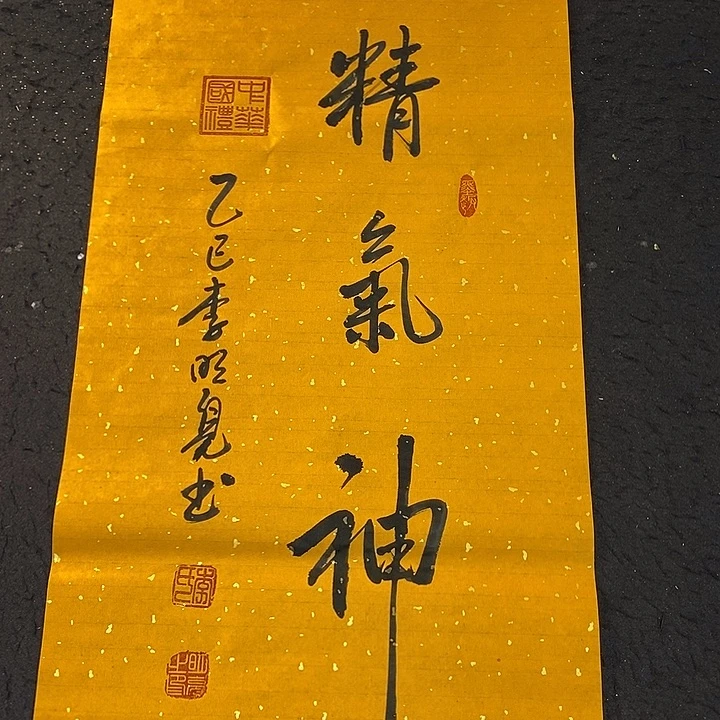 精氣神
中華國禮
乙巳李明亮书
李氏